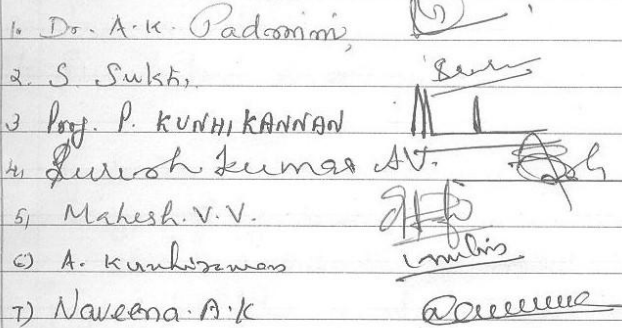 1. Dr. A.K. Padmini,
2. S Sukhi,
3 Prof. P. KUNHIKANNAN
4, Suresh Kumar AV.
5, Mahesh. V. V.
6) A. Kunhiraman
7) Naveena. A. K